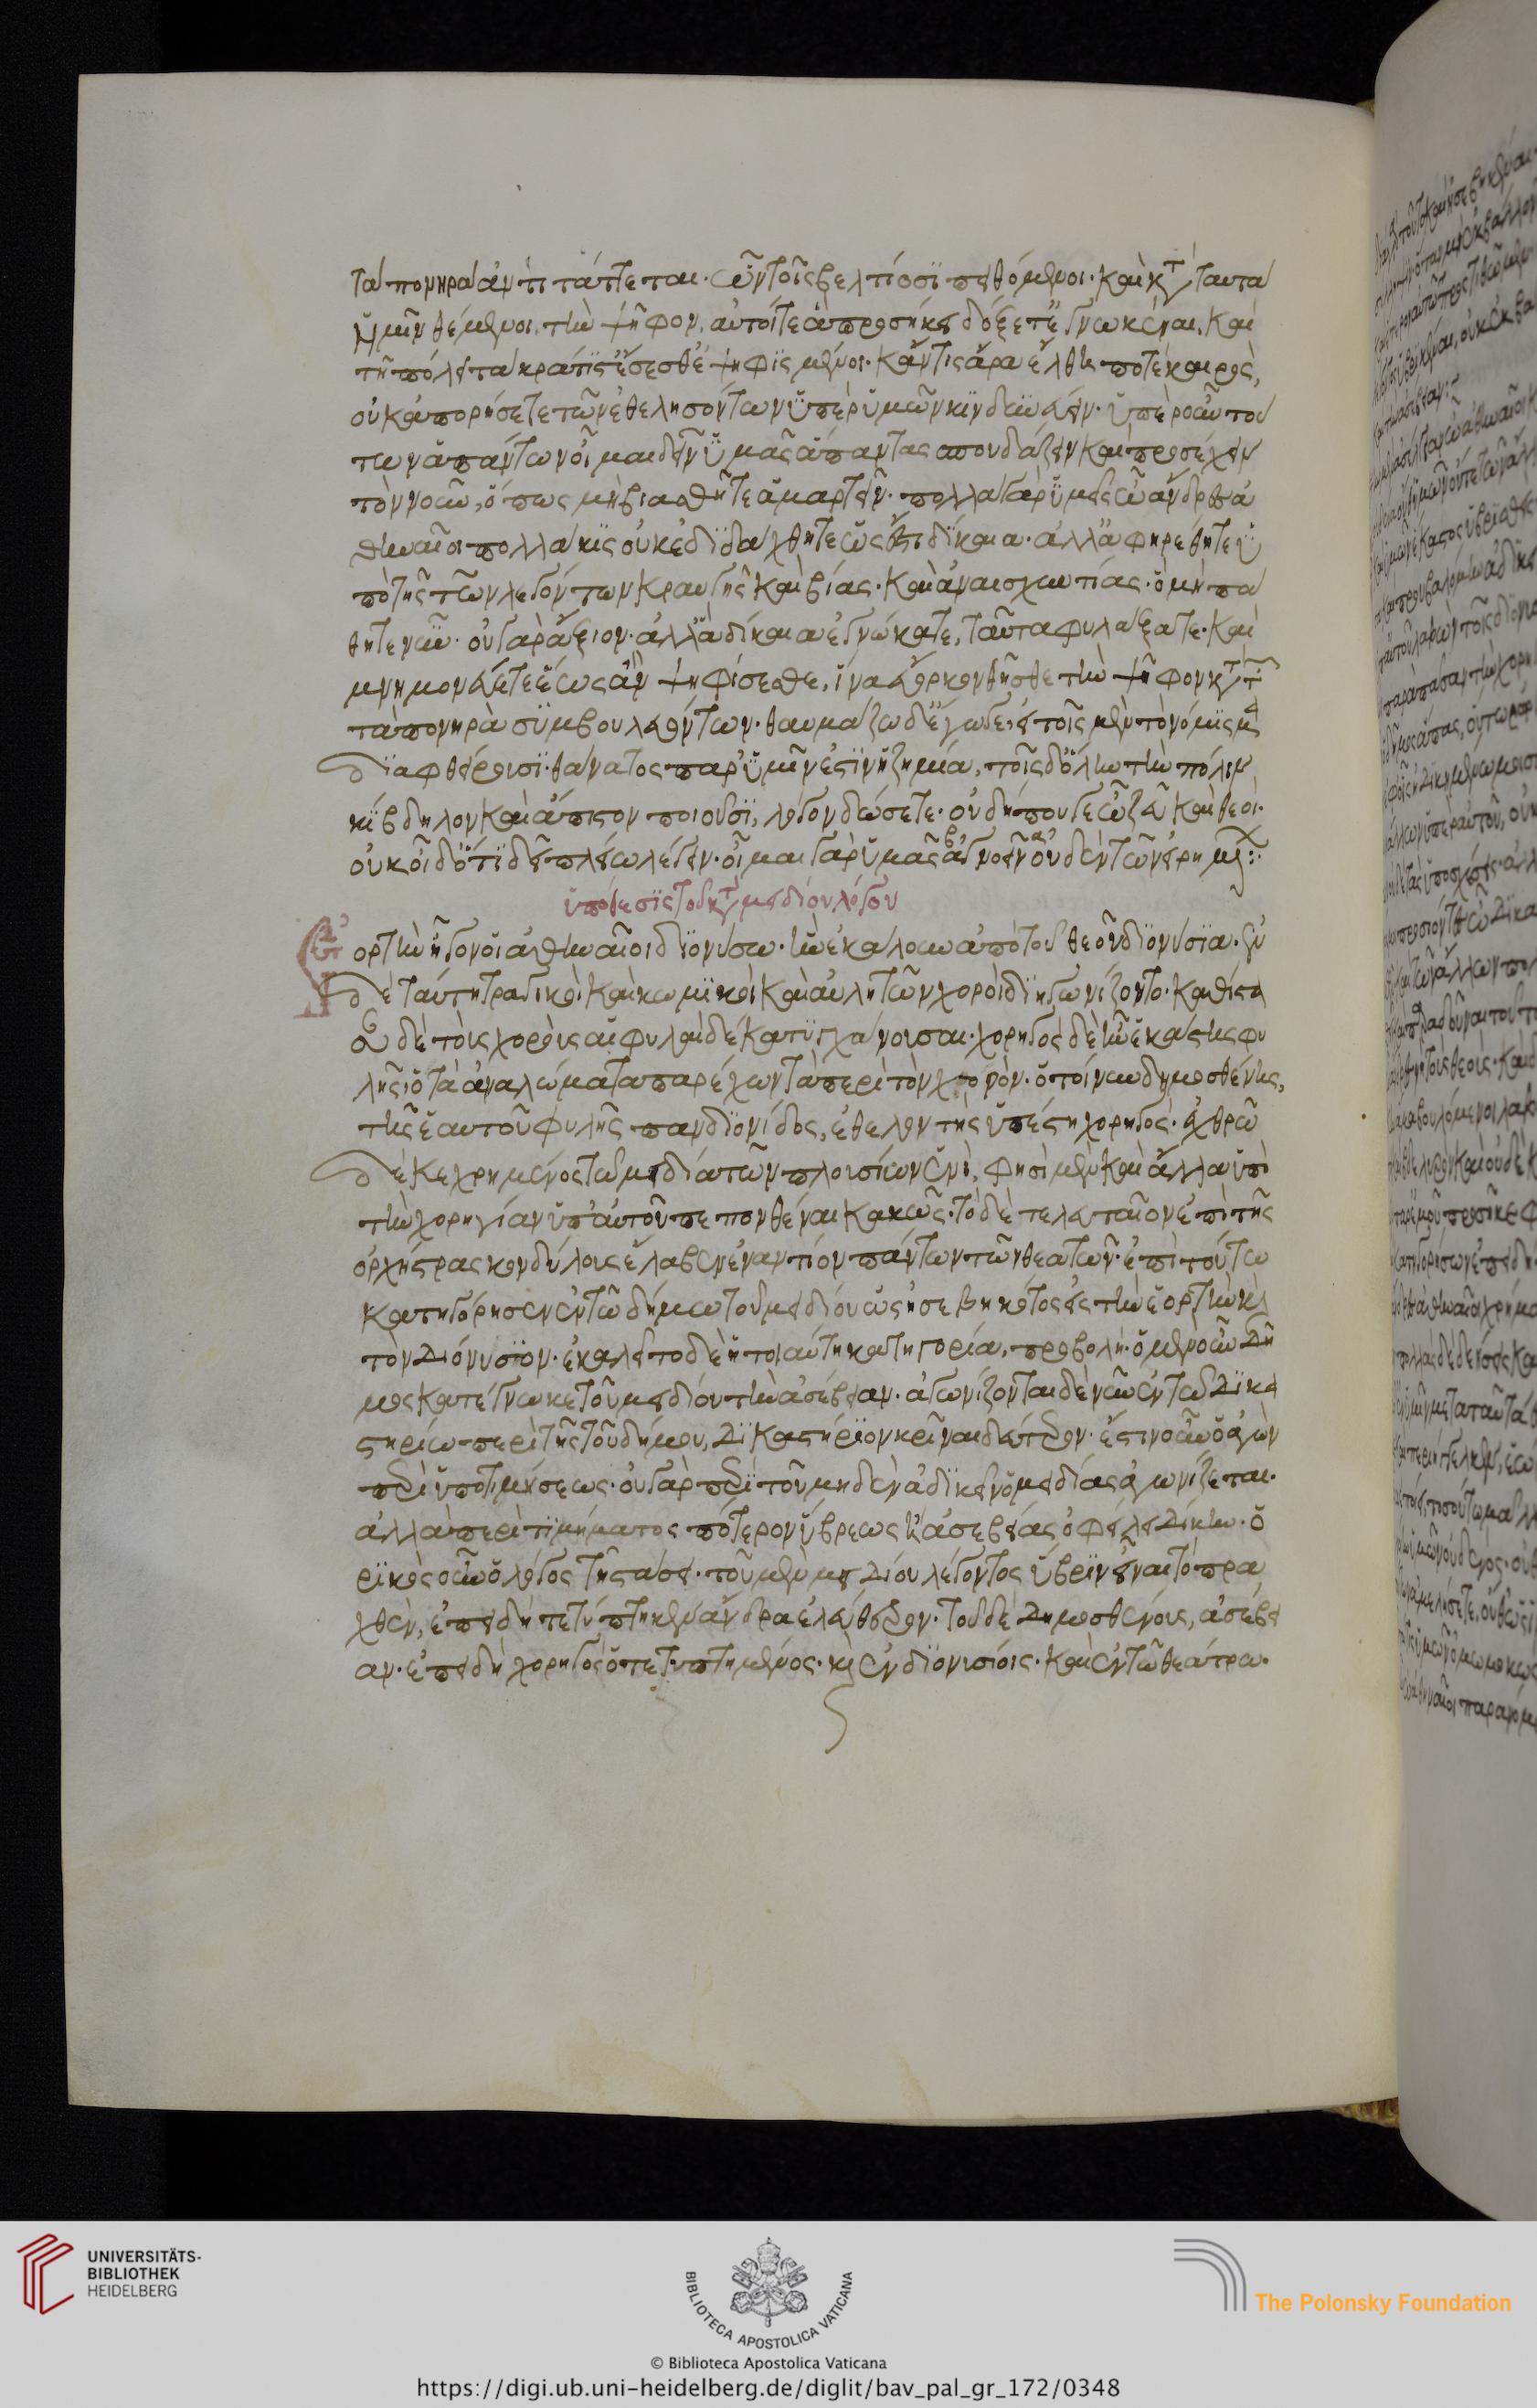 τὰ πονηρὰ ἀντιτάττεται. οὖν τοῖς βελτίοσι πειθόμενοι. καὶ κατὰ ταῦτα
ὑμῖν θέμενοι τὴν ψῆφον, αὐτοί τε ἃ προσήκει δόξετε ἐγνωκέναι, καὶ
τῇ πόλει τὰ κράτιστ' ἔσεσθε ἐψηφισμένοι. κἄν τις ἄρα ἔλθῃ ποτὲ καιρὸς,
οὐκ ἀπορήσετε τῶν ἐθελησόντων ὑπὲρ ὑμῶν κινδυνεύειν. ὑπὲρ οὖν τού
των ἁπάντων οἶμαι δεῖν ὑμᾶς ἅπαντας σπουδάζειν καὶ προσέχειν
τὸν νοῦν, ὅπως μὴ βιασθῆτε ἁμαρτεῖν. πολλὰ γὰρ ὑμεῖς ὦ ἄνδρες ἀ
θηναῖοι πολλάκις οὐκ ἐδιδάχθητε ὡς ἔστι δίκαια. ἀλλ' ἀφῃρέθητε ὑ
πὸ τῆς τῶν λεγόντων κραυγῆς καὶ βίας. καὶ ἀναισχυντίας. ὃ μὴ πά
θητε νῦν. οὐ γὰρ ἄξιον. ἀλλ' ἃ δίκαια ἐγνώκατε, ταῦτα φυλάξατε. καὶ
μνημονεύετε ἕως ἂν ψηφίσησθε, ἵνα εὔορκον θῆσθε τὴν ψῆφον κατὰ τῶν
τὰ πονηρὰ συμβουλευόντων. θαυμάζω δ' ἔγωγε, εἰ τοῖς μὲν τὸ νόμισμα
διαφθείρουσι. θάνατος παρ' ὑμῖν ἐστιν ἡ ζημία, τοῖς δ' ὅλην τὴν πόλιν
κίβδηλον καὶ ἄπιστον ποιοῦσι, λόγον δώσετε. οὐ δήπου γε ὦ ζεῦ καὶ θεοί.
οὐκ οἶδ' ὅτι δεῖ πλείω λέγειν. οἶμαι γὰρ ὑμᾶς ἀγνοεῖν οὐδὲν τῶν εἰρημένων:
ὑπόθεσις τοῦ κατὰ μειδίου λόγου
Ἑορτὴν ἦγον οἱ ἀθηναῖοι διονύσω. ἣν ἐκάλουν ἀπὸ τοῦ θεοῦ διονύσια. ἐν
δὲ ταύτη τραγικοὶ καὶ κωμικοὶ καὶ αὐλητῶν χοροὶ διηγωνίζοντο. καθίστα
σαν δὲ τοὺς χοροὺς αἱ φυλαὶ δέκα τυγχάνουσαι. χορηγὸς δὲ ἦν ἑκάστης φυ
λῆς. ὁ τὰ ἀναλώματα παρέχων τὰ περὶ τὸν χορόν. ὁ τοίνυν δημοσθένης,
τῆς ἑαυτοῦ φυλῆς πανδιονίδος, ἐθελοντὴς ὑπέστη χορηγός. ἐχθρῷ
δὲ κεχρημένος τῶ μειδία τῶν πλουσίων ἑνὶ, φησὶ μὲν καὶ ἄλλα ὑπὸ
τὴν χορηγίαν ὑπ' αὐτοῦ πεπονθέναι κακῶς. τὸ δὲ τελευταῖον ἐπὶ τῆς
ὀρχήστρας κονδύλους ἔλαβεν ἐναντίον πάντων τῶν θεατῶν. ἐπὶ τούτω
κατηγόρησεν ἐν τῶ δήμω τοῦ μειδίου ὡς ἠσεβηκότος εἰς τὴν ἑορτὴν καὶ
τὸν Διόνυσιον. ἐκαλεῖτο δὲ ἡ τοιαύτη κατηγορία, προβολή. ὁ μὲν οὖν Δῆ
μος κατέγνωκε τοῦ μειδίου τὴν ἀσέβειαν. ἀγωνίζονται δὲ νῦν ἐν τῶ Δικα
στηρίω. περὶ τῆς τοῦ δήμου, Δικαστήριον κρῖναι δεύτερον. ἔστιν οὖν ὁ ἀγὼν
περὶ ὑποτιμήσεως. οὐ γὰρ περὶ τοῦ μηδὲν ἀδικεῖν ὁ μειδίας ἀγωνίζεται.
ἀλλὰ περὶ τιμήματος πότερον ὕβρεως ἢ ἀσεβείας ὀφείλει Δίκην. ὁ
ρικὸς οὖν ὁ λόγος τῆς στάσει. τοῦ μὲν μειδίου λέγοντος ὕβριν εἶναι τὸ πρα
χθὲν, ἐπειδὴ πετύπτηκεν ἄνδρα ἐλεύθερον. τοῦ δὲ Δημοσθένους, ἀσέβει
αν. ἐπειδὴ χορηγὸς ὁ πετυπτημένος. καὶ ἐν διονυσίοις. καὶ ἐν τῶ θεάτρω.
UNIVERSITÄTS-
BIBLIOTHEK
HEIDELBERG
BIBLIOTECA APOSTOLICA VATICANA
The Polonsky Foundation
© Biblioteca Apostolica Vaticana
https://digi.ub.uni-heidelberg.de/diglit/bav_pal_gr_172/0348